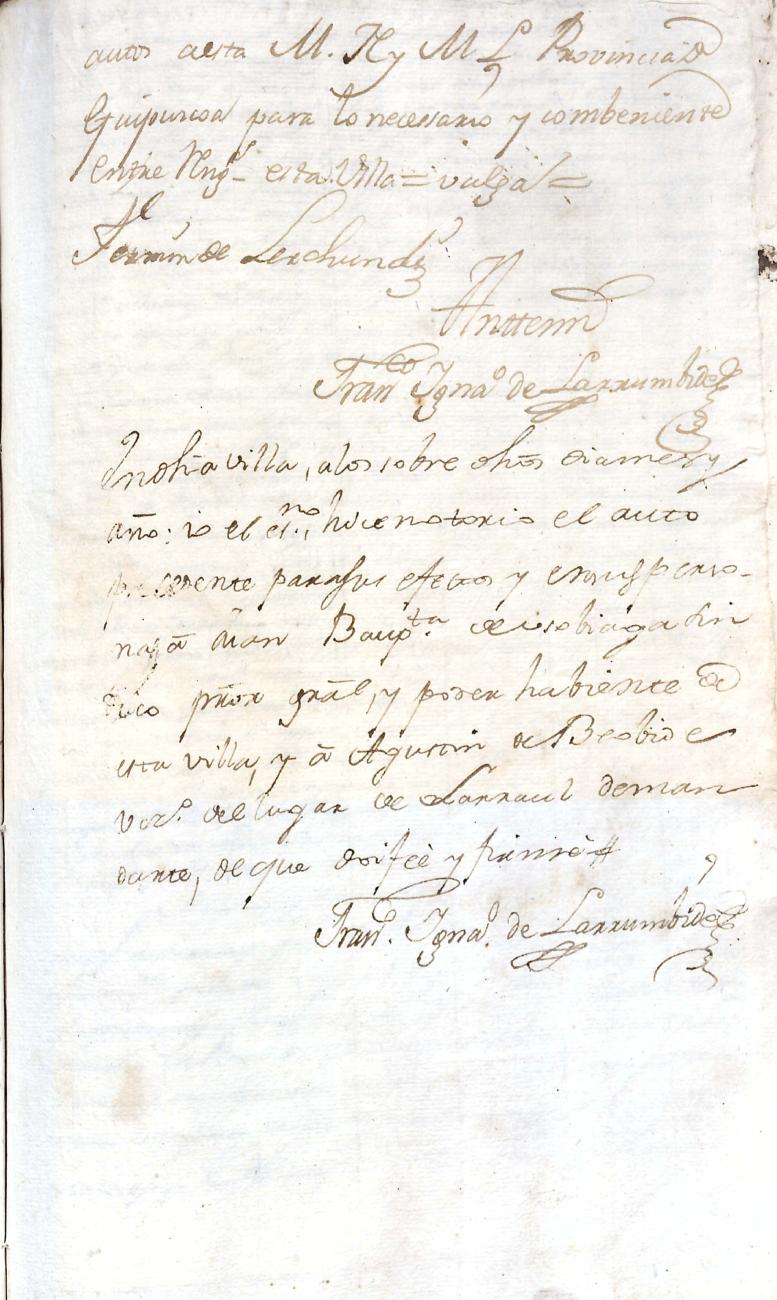 autos aesta M. N y M L Provincia de
Guipuzcoa para lo necessario y combeniente
entre Rngs esta Villa = valga =
Fermin de Lerchundi
Antte mi
Franco Ignao de Larrumbide
En dha villa, alos sobre dhos dia mes y
año: io el esno, hice notorio el auto
precedente para sus efectos y en sus perso-
nas, a Juan Baupta de isobiaga sin
dico pror gral, y poder habiente de
esta villa, y a Agustin de Beobide
vezo. del lugar de Larraul deman
dante, de que doi feè y firmè #
Frano. Ignao. de Larrumbide